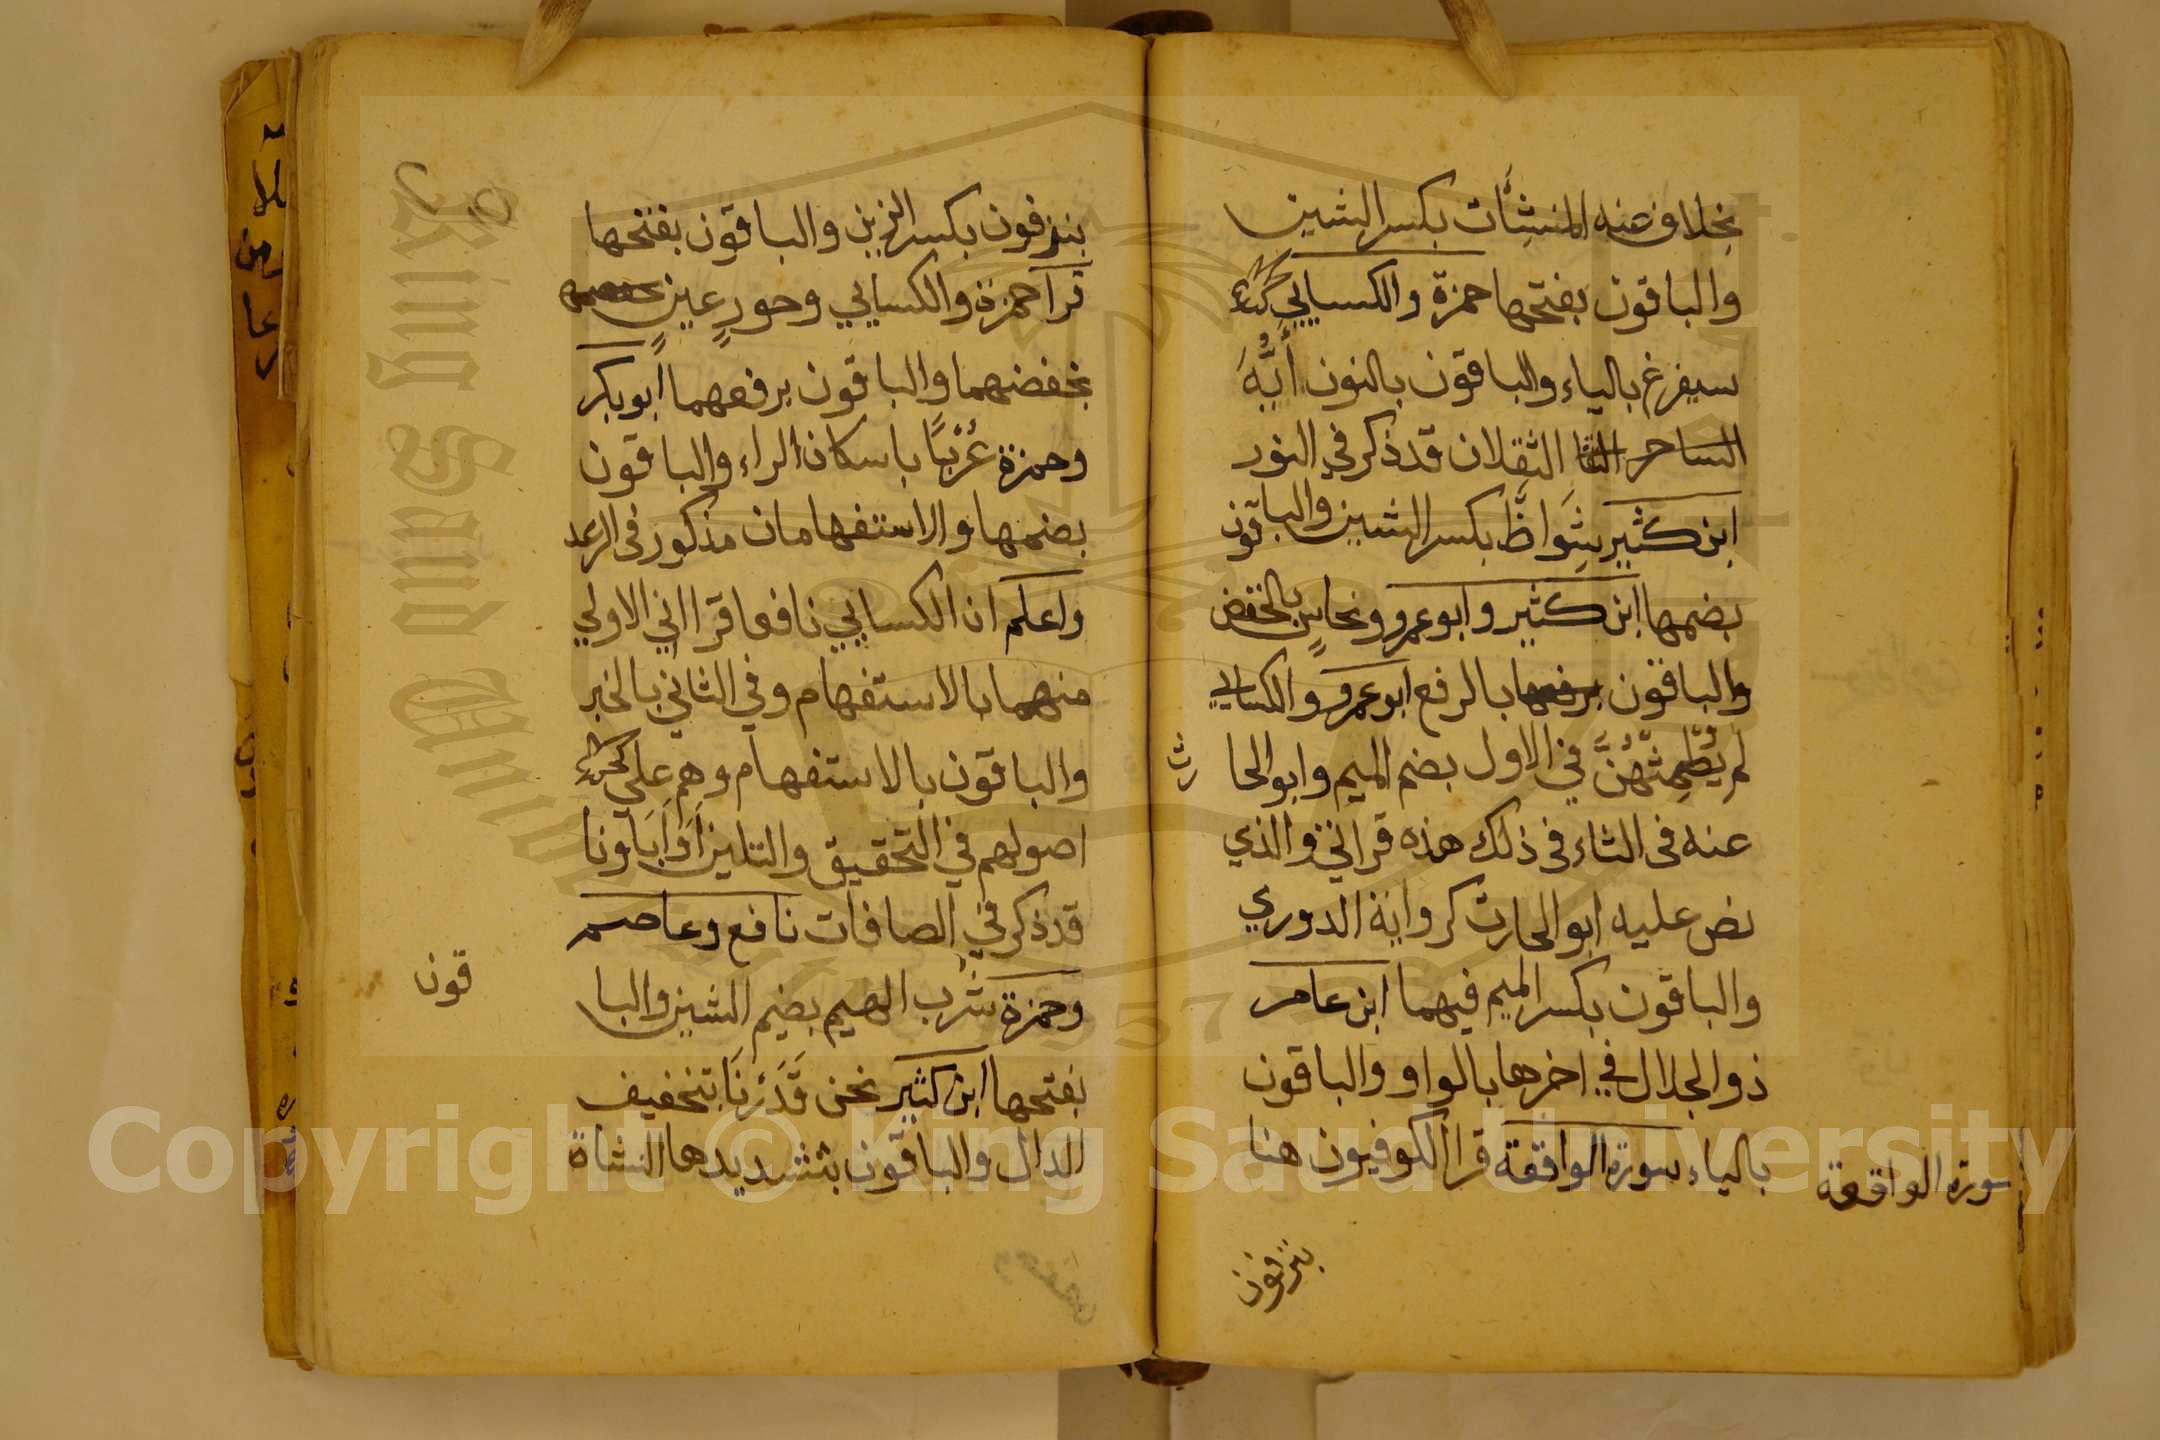 بخلاف عنه المنشِأت بكسر الشين
والباقون بفتحها حمزة والكسايي
سيفرغ بالياء والباقون بالنون أيُّهَ
الساحر الثقلان قد ذكر في النور
ابن كثير شِوَاظٌ بكسر الشين والباقون
بضمها ابن كثير وابو عمرو ونحاسٍ بالخفض
والباقون برفعها بالرفع ابو عمرو والكسايي
لم يُطْمِثْهُنَّ في الاول بضم الميم وابو الحا
رث
عنه في الثاء في ذلك هذه قراتي والذي
نص عليه ابو الحارث كرواية الدوري
والباقون بكسر الميم فيهما ابن عامر
ذو الجلال في اخرها بالواو والباقون
بالياء سورة الواقعة قرا الكوفيون هنا
سورة الواقعة
ينزفون
ينزفون بكسر الزين والباقون بفتحها
قرا حمزة والكسايي وحورٍ عينٍ
بخفضهما والباقون برفعهما ابو بكر
وحمزة عُرْبًا باسكان الراء والباقون
بضمها والاستفهامان مذكور في الرعد
واعلم ان الكسايي نافعا قرا اني الاولي
منهما بالاستفهام وفي الثاني بالخبر
والباقون بالاستفهام وهم علي
اصولهم في التحقيق والتلين أَوَابَاونا
قد ذكر في الصافات نافع وعاصم
وحمزة شُرْب الهيم بضم الشين والبا
قون
بفتحها ابن كثير نحن قَدَرْنَا بتخفيف
الدال والباقون بتشديدها النشاة